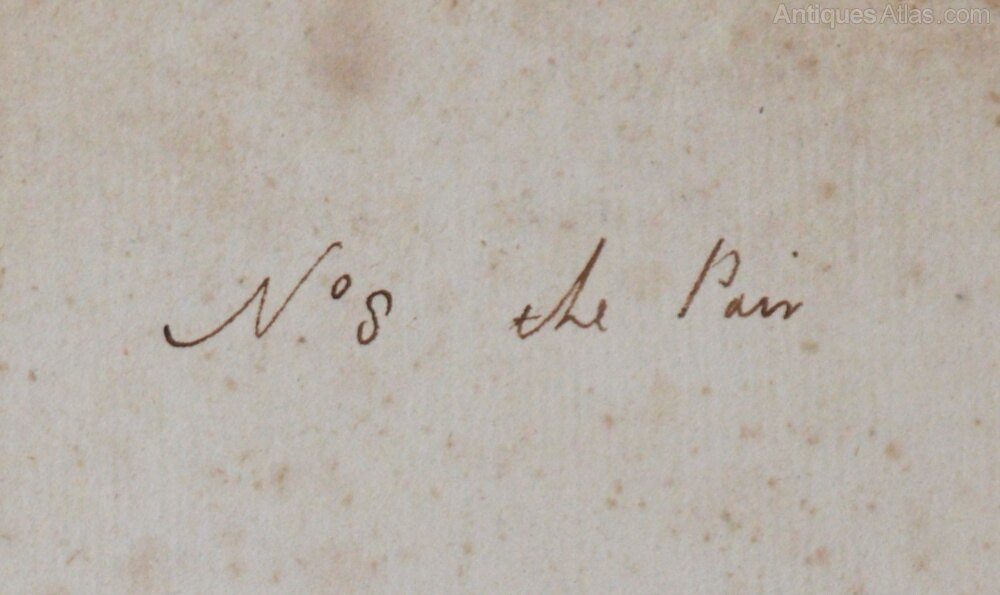 AntiquesAtlas.com
Nº 8 the Pair